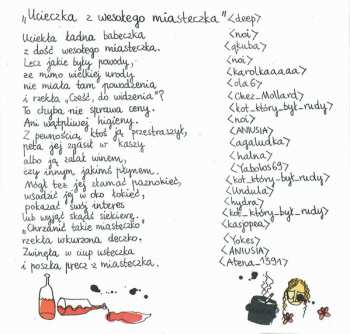 „Ucieczka z wesołego miasteczka" <deep>
Uciekła ładna babeczka <noi>
z dość wesołego miasteczka. <qkuba>
Lecz jakie były powody, <noi>
że mimo wielkiej urody <karolkaaaaa>
nie miała tam poważania <ola6>
i rzekła „Cześć, do widzenia"? <Chez_Mollard>
To chyba nie sprawa ceny. <kot_który_był_rudy>
Ani wątpliwej higieny. <noi>
Z pewnością ktoś ją przestraszył, <ANIUSIA>
peta jej zgasił w kaszy <agaludka>
albo ją zalał winem, <halna>
czy innym jakimś płynem. <Yabolos69>
Mógł też jej złamać paznokieć, <kot_który_był_rudy>
wsadzić jej w oko łokieć, <Urdula>
pokazać swój interes <hydra>
lub wyjąć skądś siekierę. <kot_który_był_rudy>
„Chrzanić takie miasteczko" <kasjopea>
rzekła wkurzona deczko. <Yokes>
Zwinęła w ciup usteczka <ANIUSIA>
i poszła precz z miasteczka. <Atena_1591>